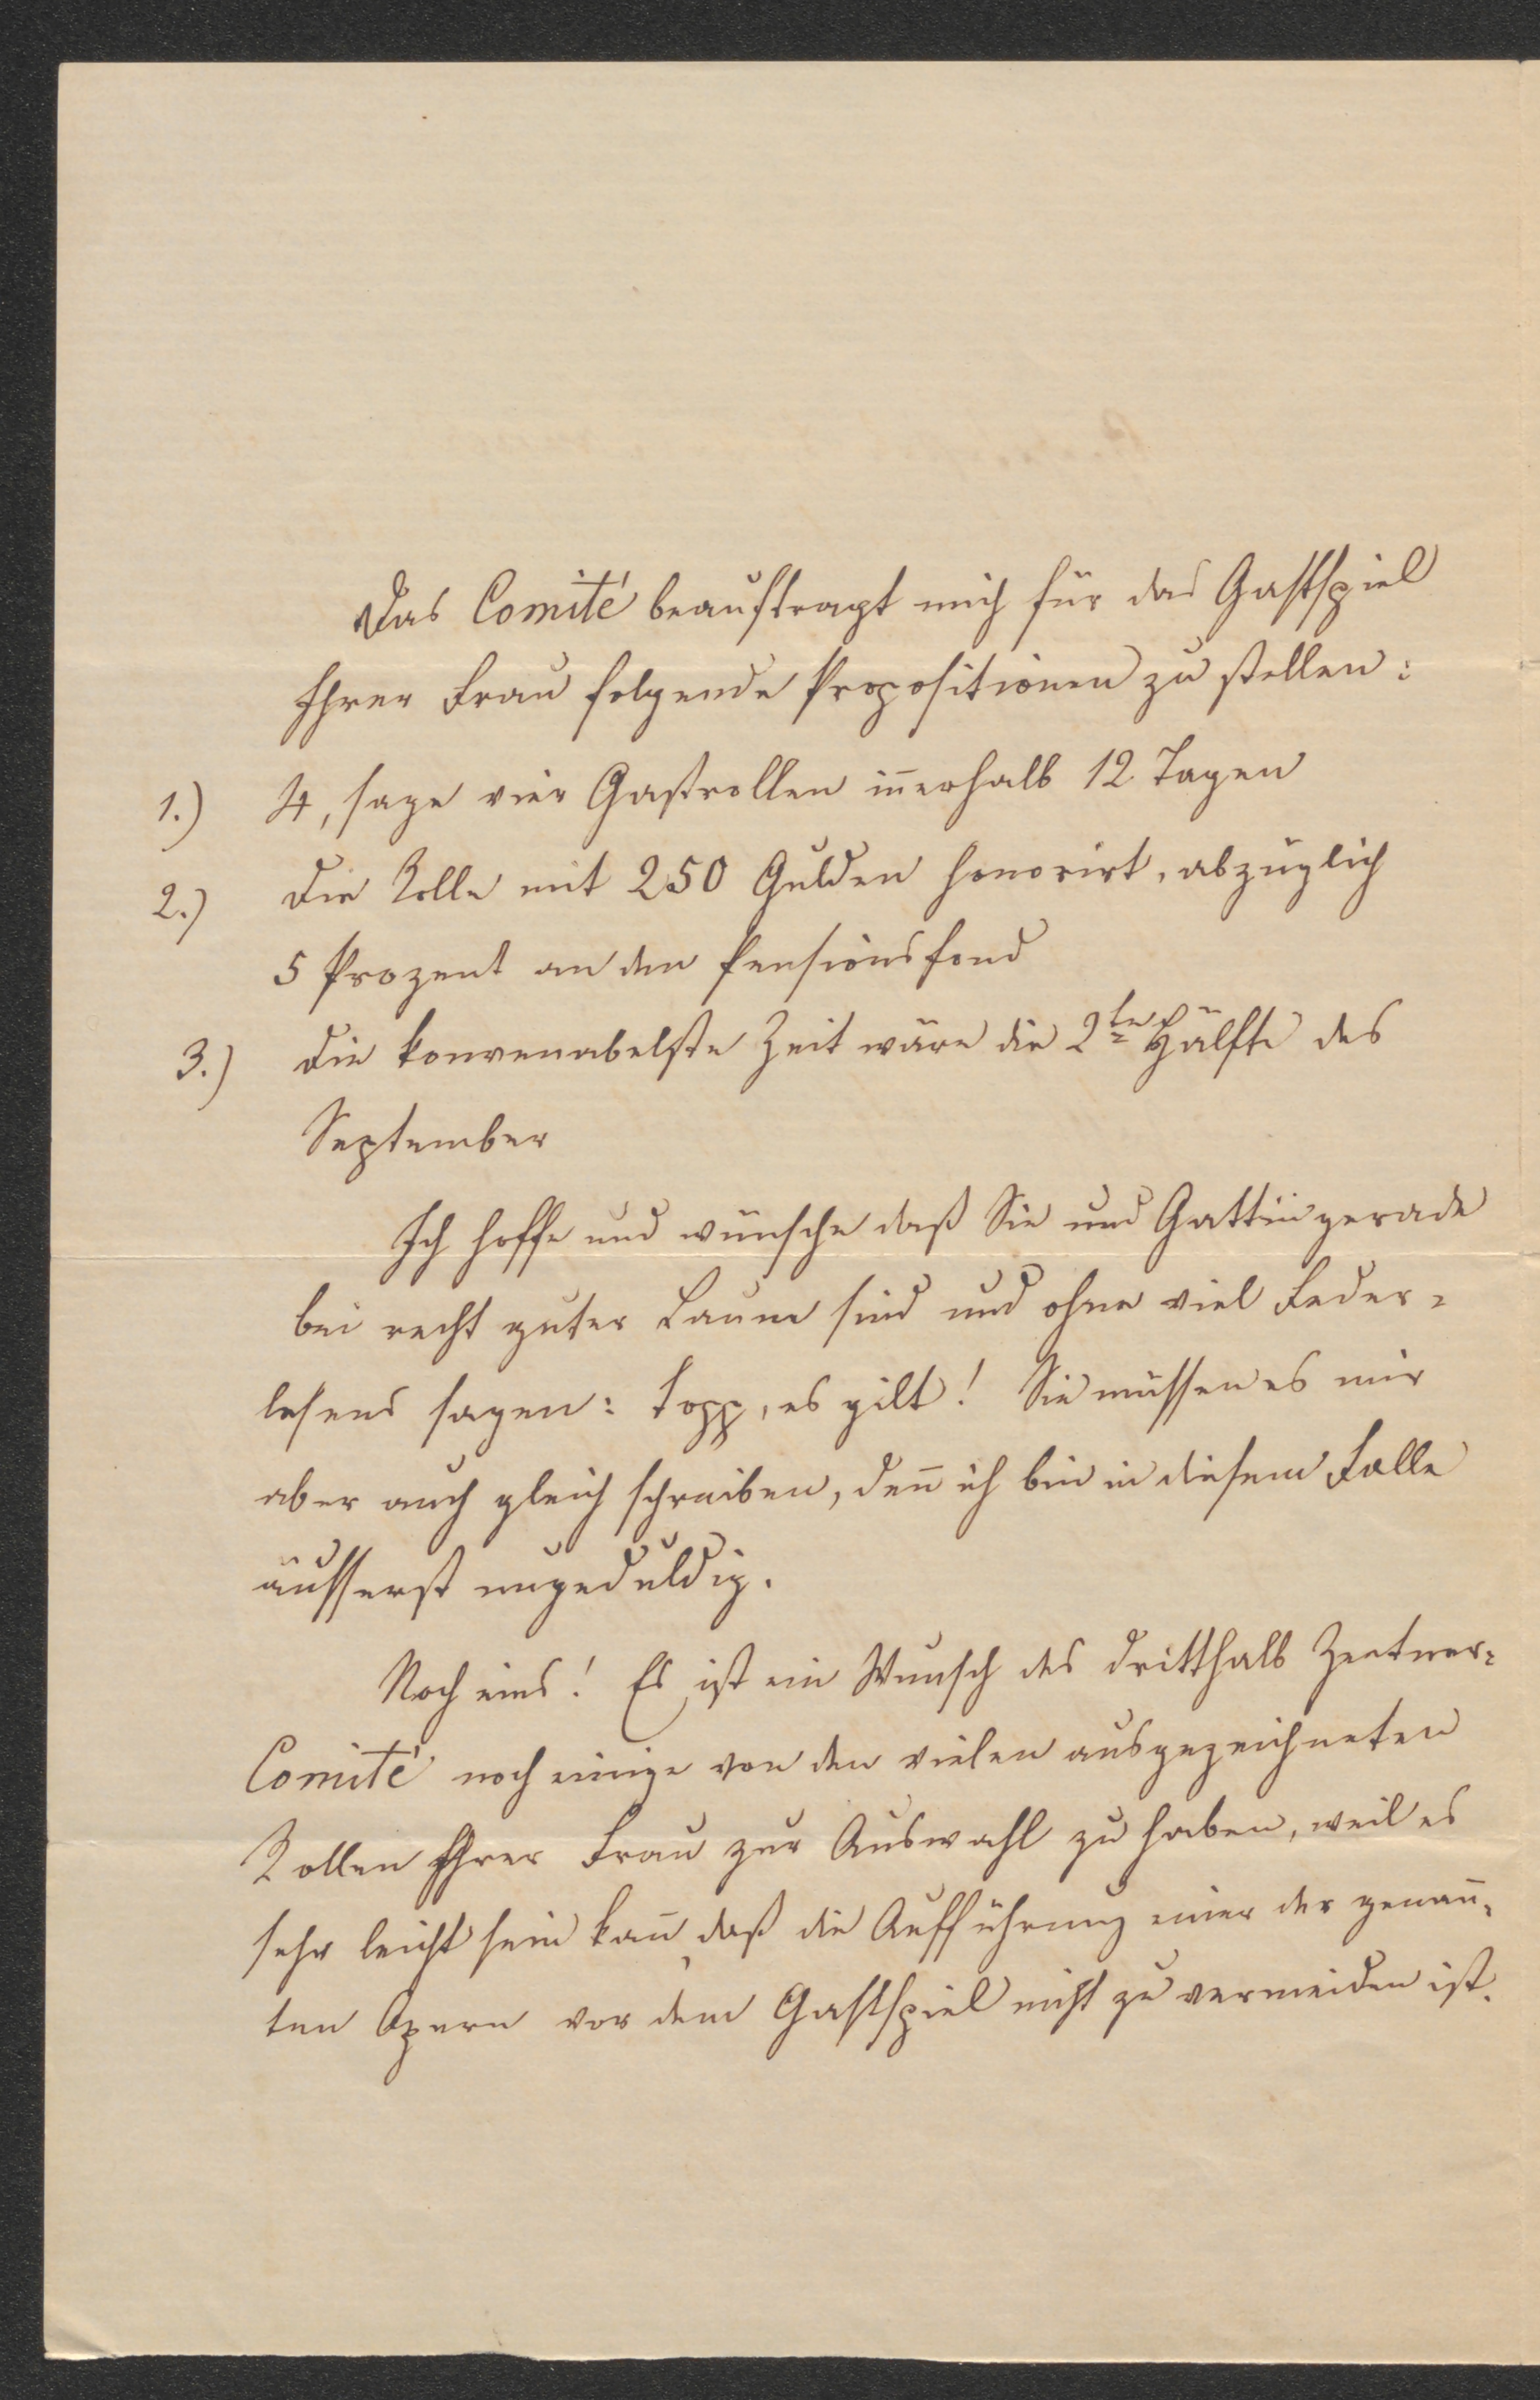 Das Comité beauftragt mich für das Gastspiel
Ihrer Frau folgende Propositionen zu stellen:
1.) 4, sage vier Gastrollen iñerhalb 12 Tagen
2.) Die Rolle mit 250 Gulden honorirt, abzüglich
5 Prozent an den Pensionsfond
3.) Die konvenabelste Zeit wäre die 2te Hälfte des
September
Ich hoffe und wünsche daß Sie und Gattin gerade
bei recht guter Laune sind und ohne viel Feder=
lesens sagen: Topp, es gilt! Sie müssen es mir
aber auch gleich schreiben, deñ ich bin in diesem Falle
äusserst ungeduldig.
Noch eins! Es ist ein Wunsch des dritthalb Zentner=
Comité noch einige von den vielen ausgezeichneten
Rollen Ihrer Frau zur Auswahl zu haben, weil es
sehr leicht sein kañ, daß die Aufführung einer der genañ=
ten Opern vor dem Gastspiel nicht zu vermeiden ist.